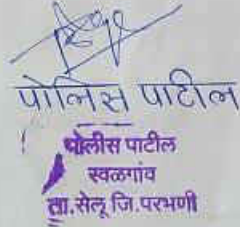 पोलिस पाटील
पोलीस पाटील
रवळगांव
ता.सेलू जि.परभणी